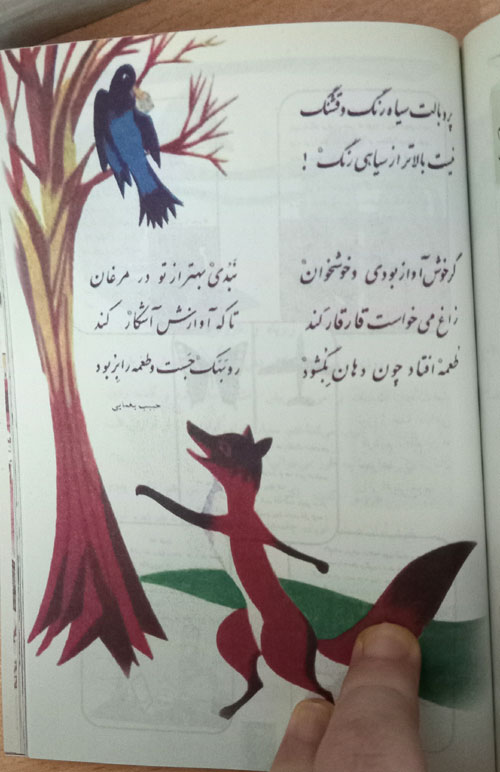 پر و بالت سیاه رنگ و قشنگ
نیست بالاتر از سیاهی رنگ !
گر خوش آواز بودی و خوشخوان نبدی بهتر از تو در مرغان
زاغ می خواست قار قار کند تا که آوازش آشکار کند
طعمه افتاد چون دهان بگشود روبهک جست و طعمه را بربود
حبیب یغمایی